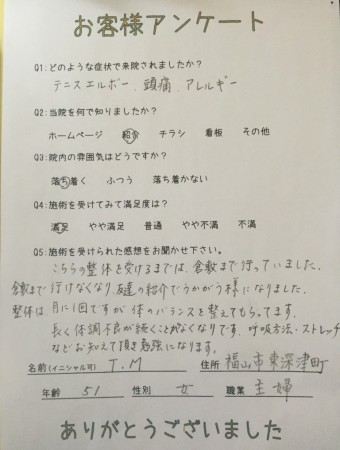 お客様アンケート
Q1:どのような症状で来院されましたか?
テニスエルボー、頭痛、アレルギー
Q2:当院を何で知りましたか?
ホームページ 紹介 チラシ 看板 その他
Q3:院内の雰囲気はどうですか?
落ち着く ふつう 落ち着かない
Q4:施術を受けてみて満足度は?
満足 やや満足 普通 やや不満 不満
Q5:施術を受けられた感想をお聞かせ下さい。
こちらの整体を受けるまでは、倉敷まで行っていました。
倉敷まで行けなくなり、友達の紹介でうかがう様になりました。
整体は月に1回ですが体のバランスを整えてもらってます。
長く体調不良が続くことがなくなりです、呼吸方法・ストレッチ
などお知えて頂き勉強になります。
名前(イニシャル可) T.M 住所 福山市東深津町
年齢 51 性別 女 職業 主婦
ありがとうございました